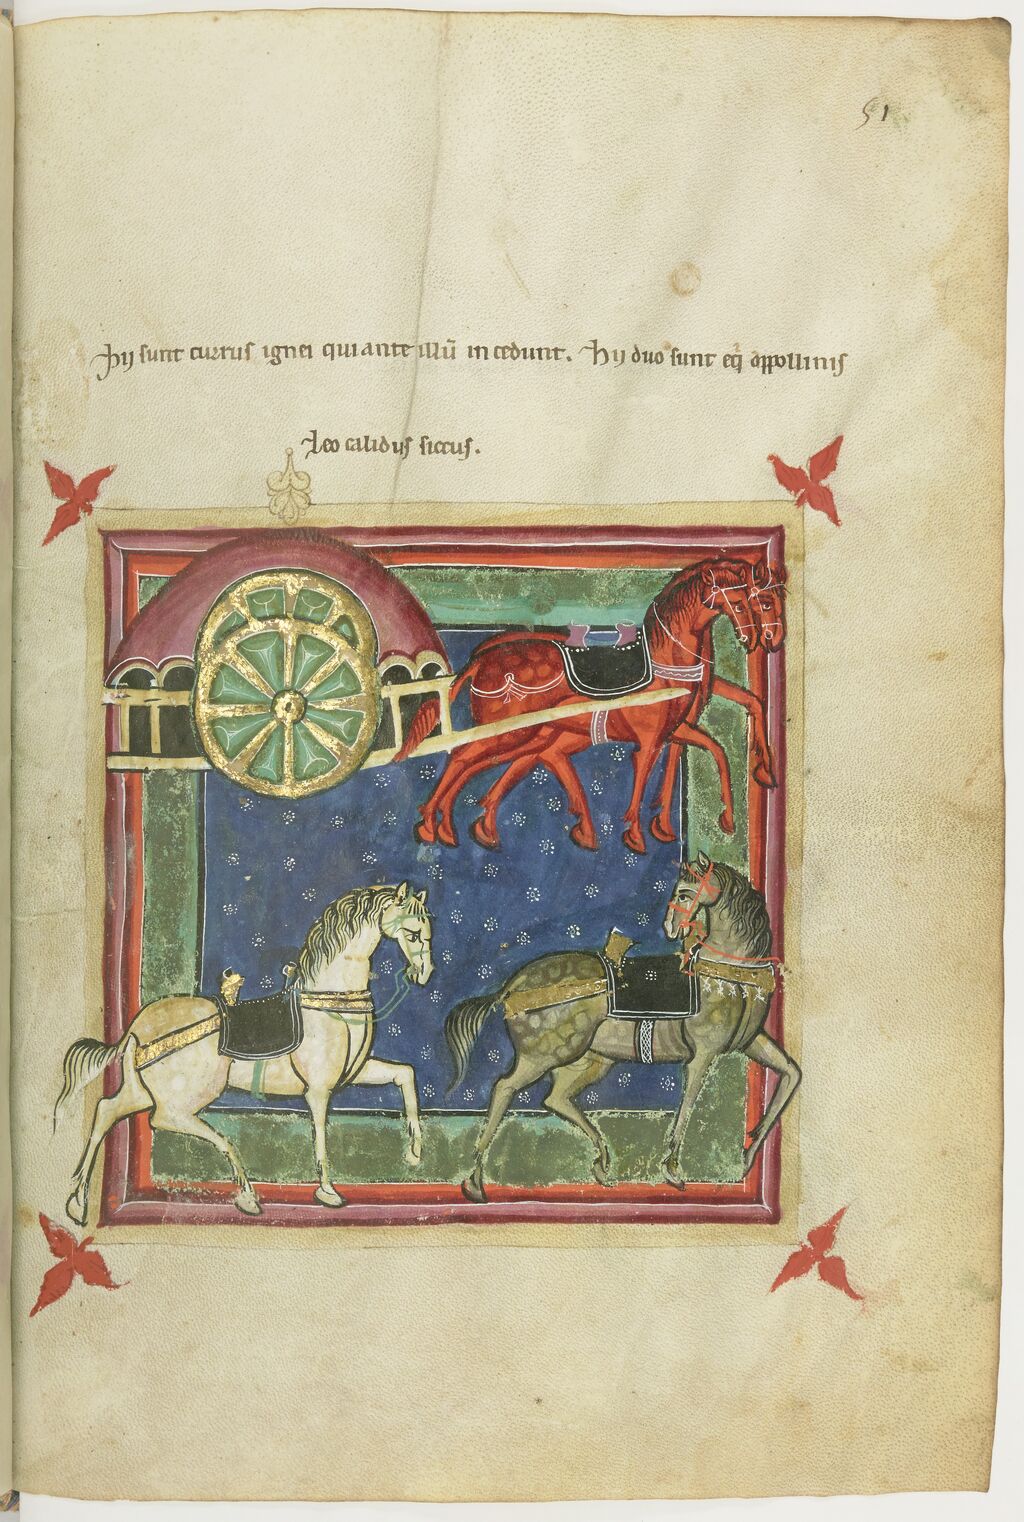 51
Hij sunt currus ignei qui ante illū incedunt. Hij duo sunt eq̇ appollinis
Leo calidus siccus.